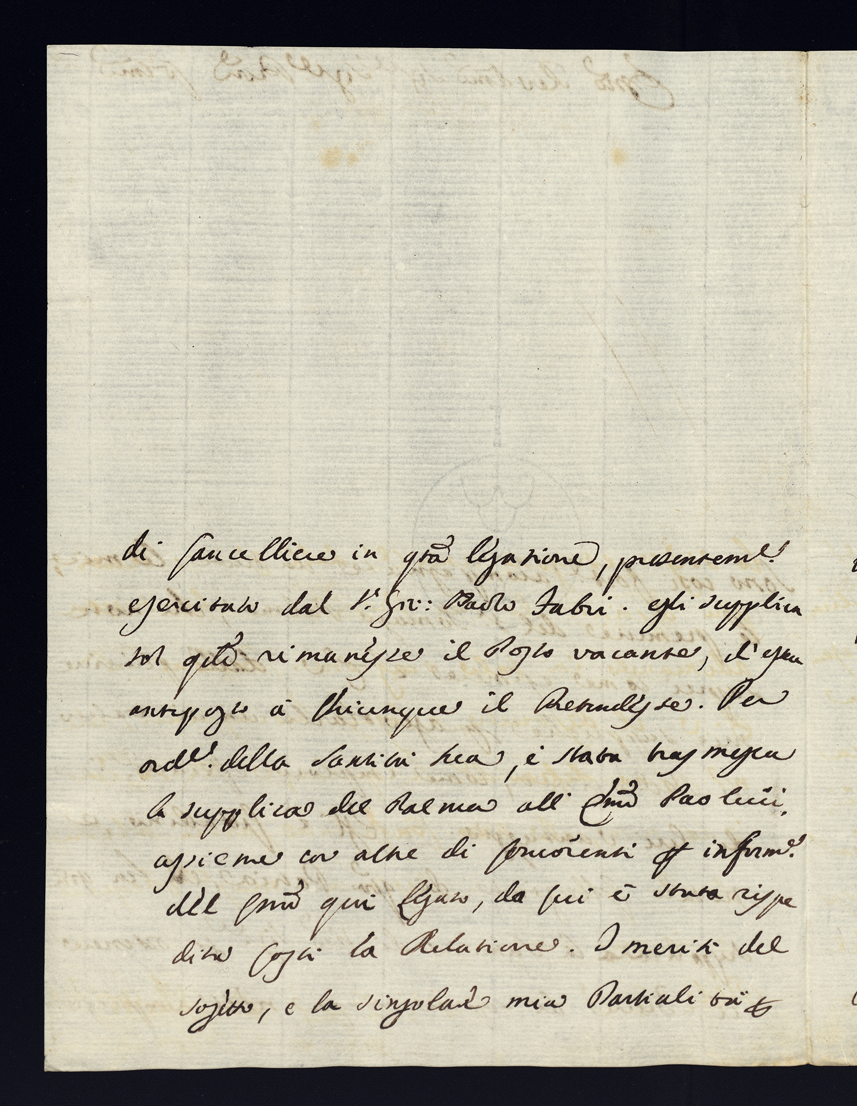 di Cancelliere in qta Legatione, presentemte
esercitato dal Sr. Gio: Paolo Fabri. egli supplica
se rimanesse il Posto vacante, d'essere
anteposto à chiunque il Pretendesse. Per
ordne. della Santità sua, è stata trasmessa
la supplica del Palma all' Emo Paolucci,
assieme con altre di concorrenti informe.
dell' Emo qui Legato, da cui è stata rispe
dita costi la Relatione. I meriti del
sogetto, e la singolare mia Partialità